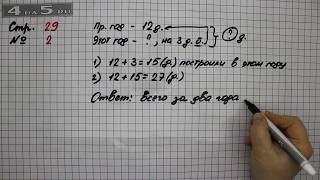 4 на 5.ru
Стр. 29
№ 2
Пр. год – 12 д.
Этот год – ?, на 3 д. б.
? д.
1) 12 + 3 = 15 (д) построили в этом году
2) 12 + 15 = 27 (д)
Ответ: всего за два года